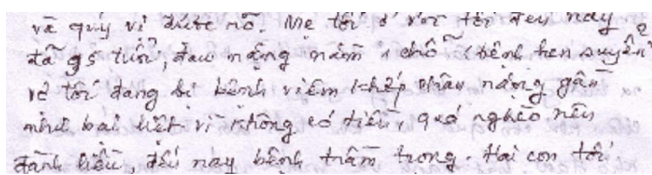 và quý vị được rõ. Mẹ tôi ở với tôi đến nay
đã 95 tuổi, đau nặng nằm 1 chỗ (bệnh hen suyễn)
tôi đang bị bệnh viêm khớp chân nặng gần
như bại liệt vì không có tiền, quá nghèo nên
đành liều, đến nay bệnh trầm trọng. Hai con tôi